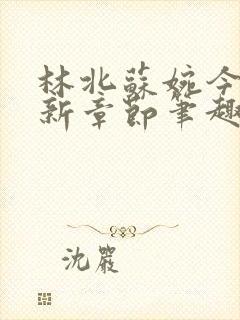 林北蘇婉今
新章節筆趣
沈嚴